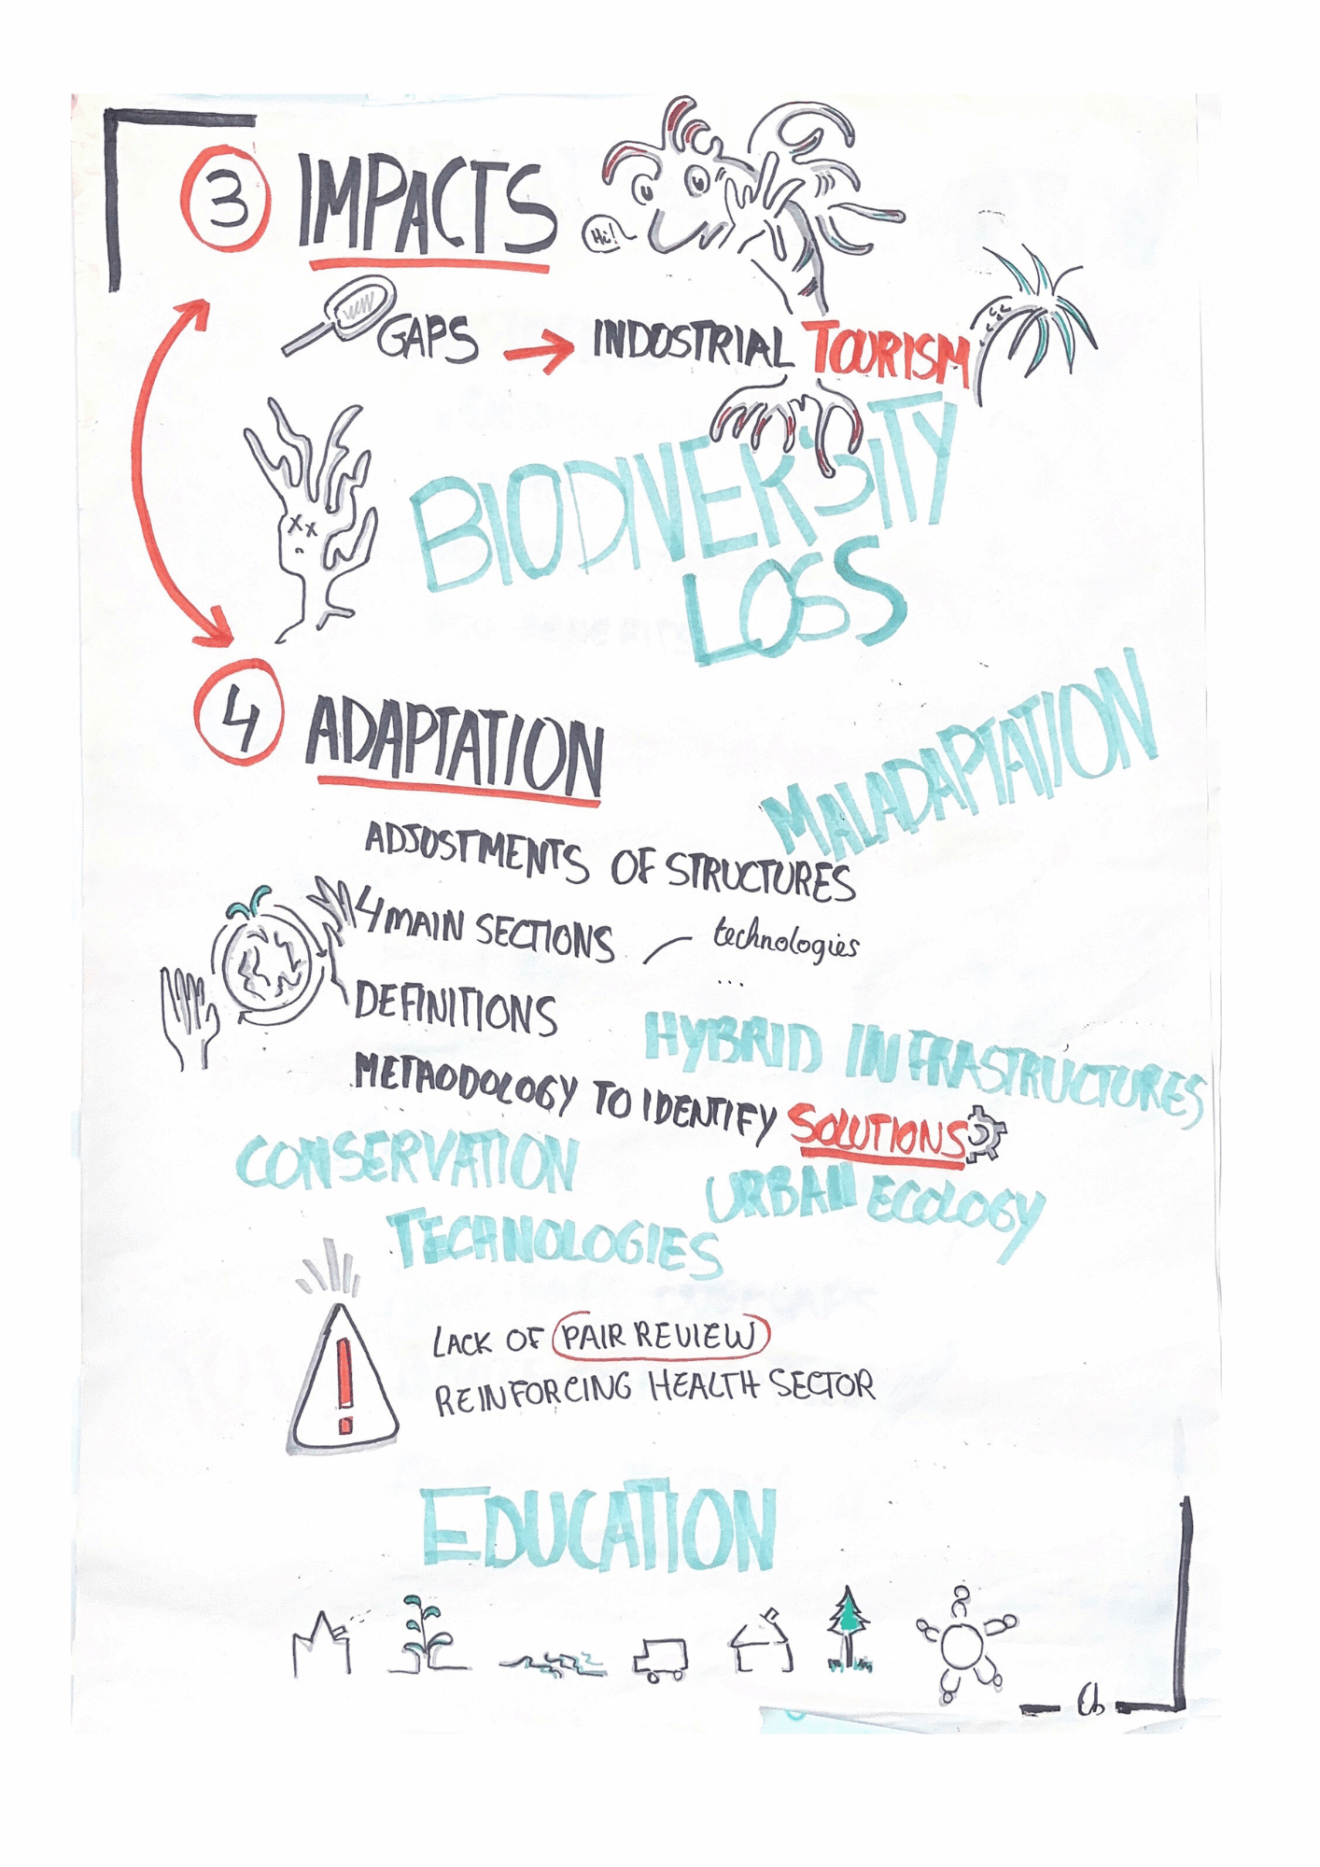 3 IMPACTS
Hi!
GAPS → INDUSTRIAL TOURISM
BIODIVERSITY
LOSS
4 ADAPTATION
MALADAPTATION
ADJUSTMENTS OF STRUCTURES
4 MAIN SECTIONS technologies
...
DEFINITIONS
HYBRID INFRASTRUCTURES
METHODOLOGY TO IDENTIFY SOLUTIONS
CONSERVATION
URBAN ECOLOGY
TECHNOLOGIES
LACK OF PAIR REVIEW
REINFORCING HEALTH SECTOR
EDUCATION